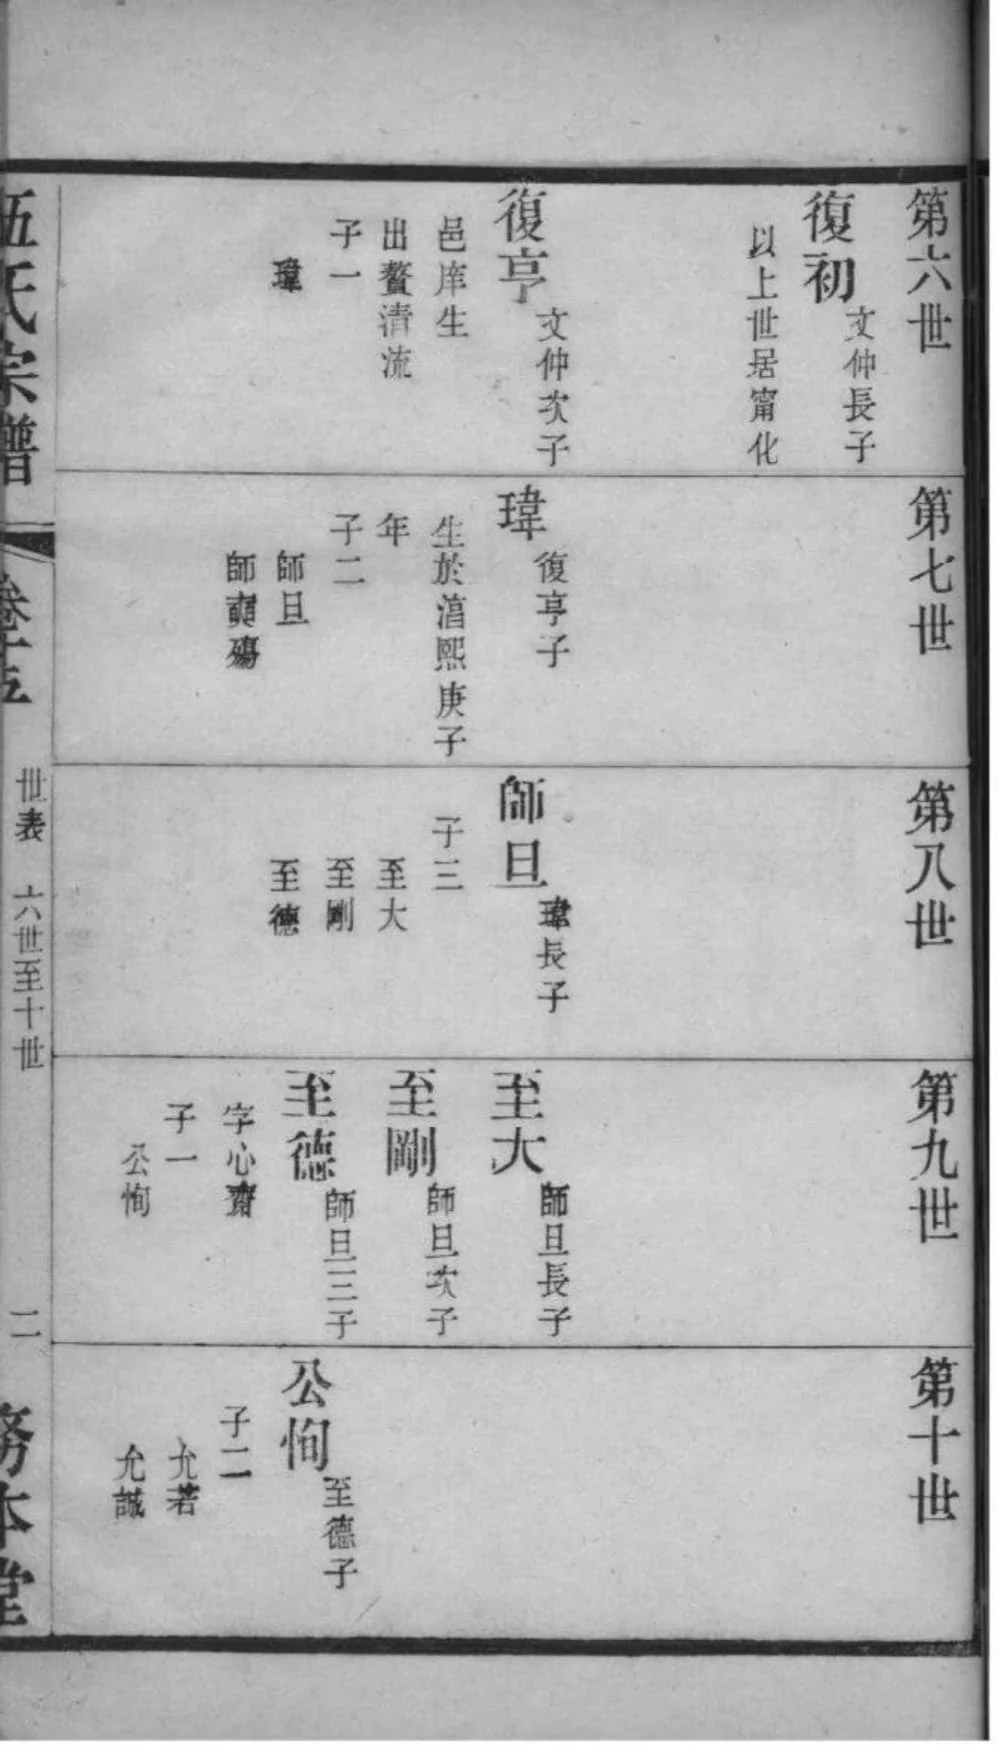 第六世
復初
文仲長子
以上世居甯化
復亨
文仲次子
邑庠生
出贅清流
子一
瑋
第七世
瑋
復亨子
生於湻熙庚子
年
子二
師旦
師奭殤
第八世
師旦
瑋長子
子三
至大
至剛
至德
第九世
至大
師旦長子
至剛
師旦次子
至德
師旦三子
字心齋
子一
公恂
第十世
公恂
至德子
子二
允若
允誠
伍氏宗譜
卷十五
世表 六世至十世
二
務本堂